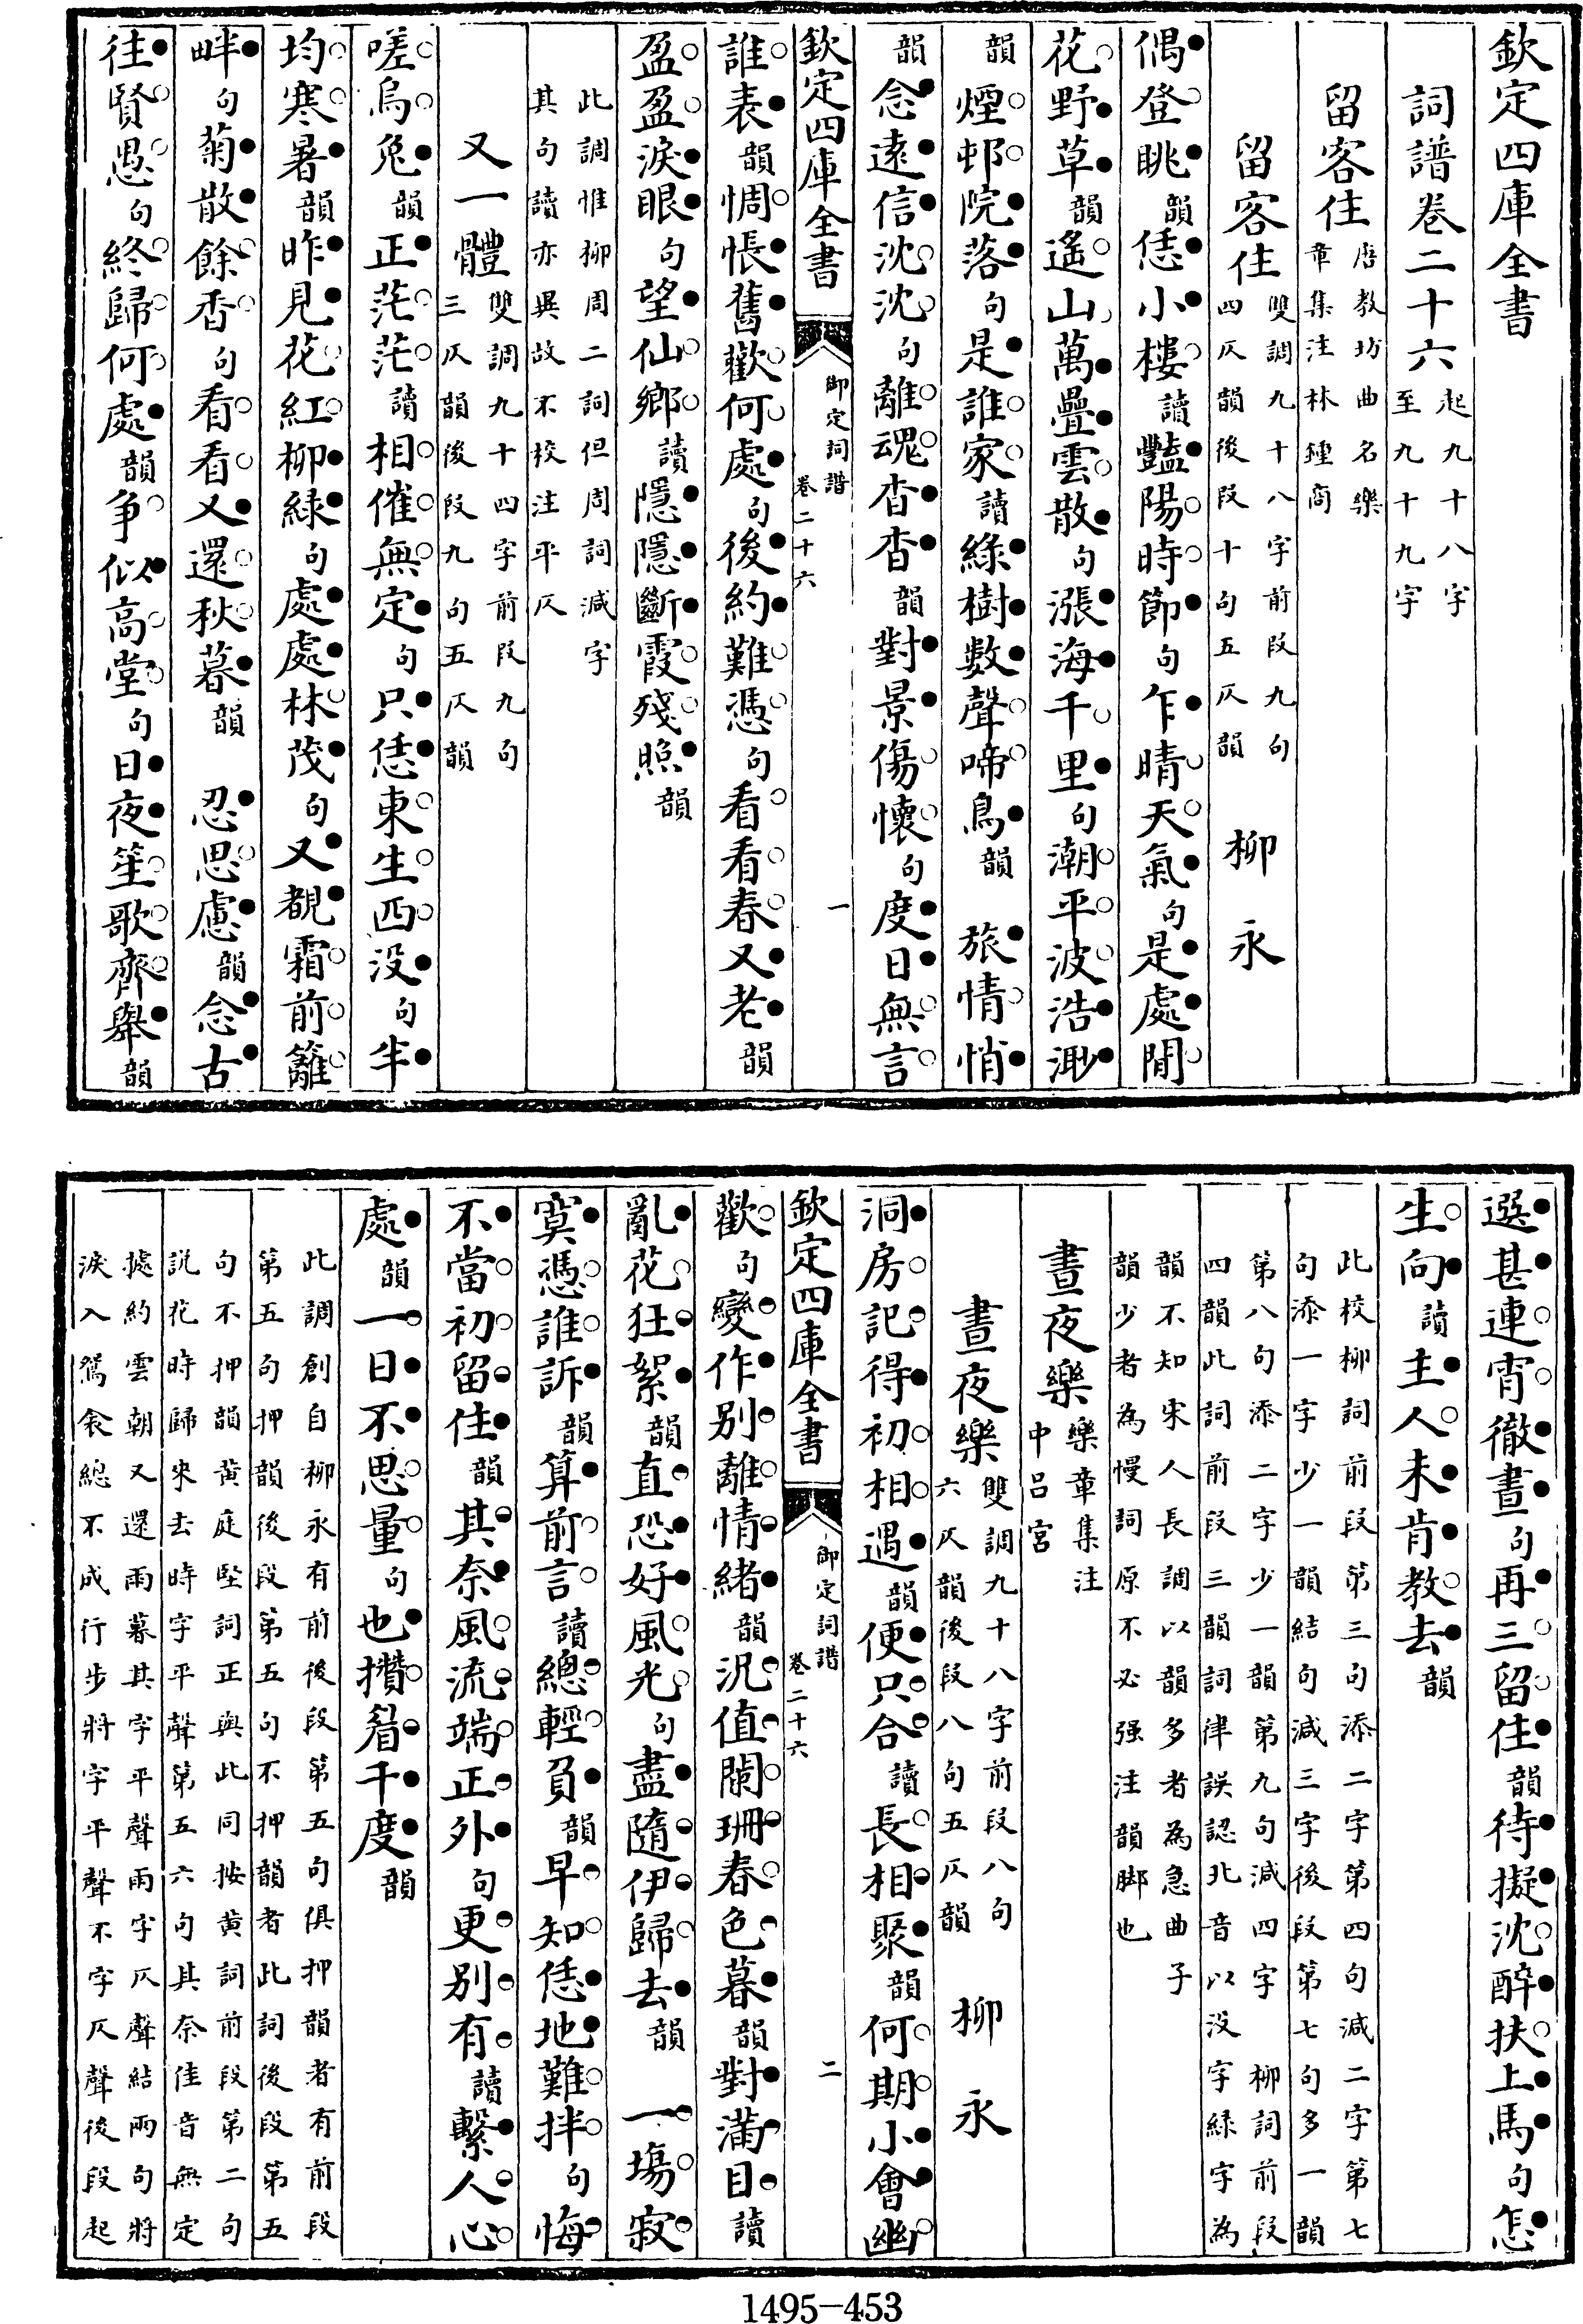 欽定四庫全書
詞譜卷二十六起九十八字至九十九字
留客住唐教坊曲名樂章集注林鍾商
留客住雙調九十八字前段九句四仄韻後段十句五仄韻 柳永
偶登眺韻恁小樓讀豔陽時節句乍晴天氣句是處閒
花野草韻遙山萬疊雲散句漲海千里句潮平波浩渺
韻煙邨院落句是誰家讀綠樹數聲啼鳥韻 旅情悄
韻念遠信沈沈句離魂杳杳韻對景傷懷句度日無言
欽定四庫全書 御定詞譜 卷二十六 一
誰表韻惆悵舊歡何處句後約難憑句看看春又老韻
盈盈淚眼句望仙鄉讀隱隱斷霞殘照韻
此調惟柳周二詞但周詞減字
其句讀亦異故不校注平仄
又一體雙調九十四字前段九句三仄韻後段九句五仄韻
嗟烏兔韻正茫茫讀相催無定句只恁東生西沒句半
均寒暑韻昨見花紅柳綠句處處林茂句又覩霜前籬
畔句菊散餘香句看看又還秋暮韻 忍思慮韻念古
往賢愚句終歸何處韻爭似高堂句日夜笙歌齊舉韻
選甚連宵徹晝句再三留住韻待擬沈醉扶上馬句怎
生向讀主人未肯教去韻
此校柳詞前段第三句添二字第四句減二字第七
句添一字少一韻結句減三字後段第七句多一韻
第八句添二字少一韻第九句減四字 柳詞前段
四韻此詞前段三韻詞律誤認北音以沒字綠字為
韻不知宋人長調以韻多者為急曲子
韻少者為慢詞原不必强注韻脚也
晝夜樂樂章集注中呂宮
晝夜樂雙調九十八字前段八句六仄韻後段八句五仄韻 柳永
洞房記得初相遇韻便只合讀長相聚韻何期小會幽
欽定四庫全書 御定詞譜 卷二十六 二
歡句變作別離情緒韻況值闌珊春色暮韻對滿目讀
亂花狂絮韻直恐好風光句盡隨伊歸去韻 一塲寂
寞憑誰訴韻算前言讀總輕負韻早知恁地難拌句悔
不當初留住韻其奈風流端正外句更別有讀繫人心
處韻一日不思量句也攢眉千度韻
此調創自柳永有前後段第五句俱押韻者有前段
第五句押韻後段第五句不押韻者此詞後段第五
句不押韻黃庭堅詞正與此同按黃詞前段第二句
說花時歸來去時字平聲第五六句其奈佳音無定
據約雲朝又還雨暮其字平聲雨字仄聲結兩句將
淚入鴛衾總不成行步將字平聲不字仄聲後段起
1495-453